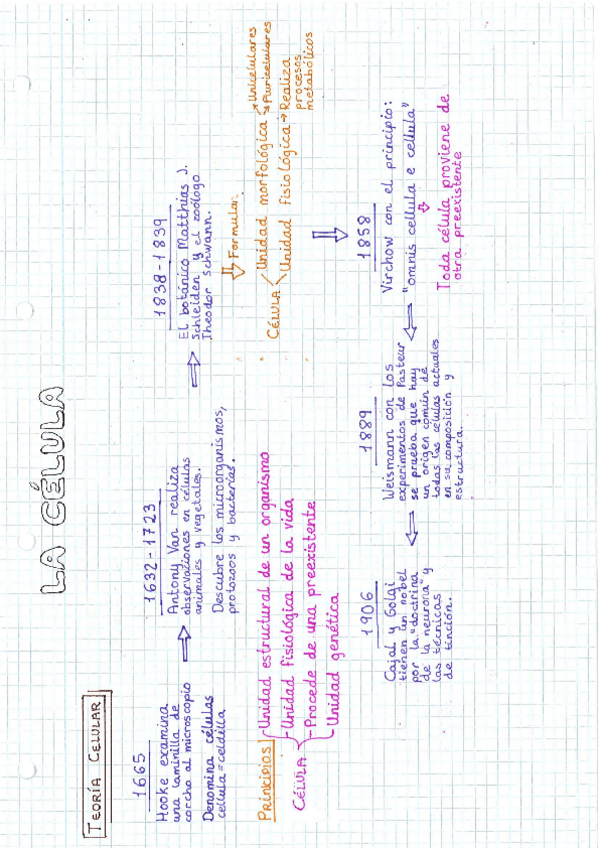 LA CÉLULA
TEORÍA CELULAR
1665
Hooke examina
una laminilla de
corcho al microscopio
Denomina células
cellula = celdilla
1632 - 1723
Antony Van realiza
observaciones en células
animales y vegetales.
Descubre los microorganismos,
protozoos y bacterias.
1838 - 1839
El botánico Matthias J.
Schleiden y el zoólogo
Theodor Schwann.
Formulan
CÉLULA
Unidad morfológica
Unicelulares
Pluricelulares
Unidad fisiológica
Realiza
procesos
metabólicos
PRINCIPIOS
CÉLULA
Unidad estructural de un organismo
Unidad fisiológica de la vida
Procede de una preexistente
Unidad genética
1858
Virchow con el principio:
"omnis cellula e cellula"
Toda célula proviene de
otra preexistente
1889
Weismann con los
experimentos de Pasteur
se prueba que hay
un origen común de
todas las células actuales
en su composición y
estructura.
1906
Cajal y Golgi
tienen un nobel
por la "doctrina
de la neurona" y
las técnicas
de tinción.